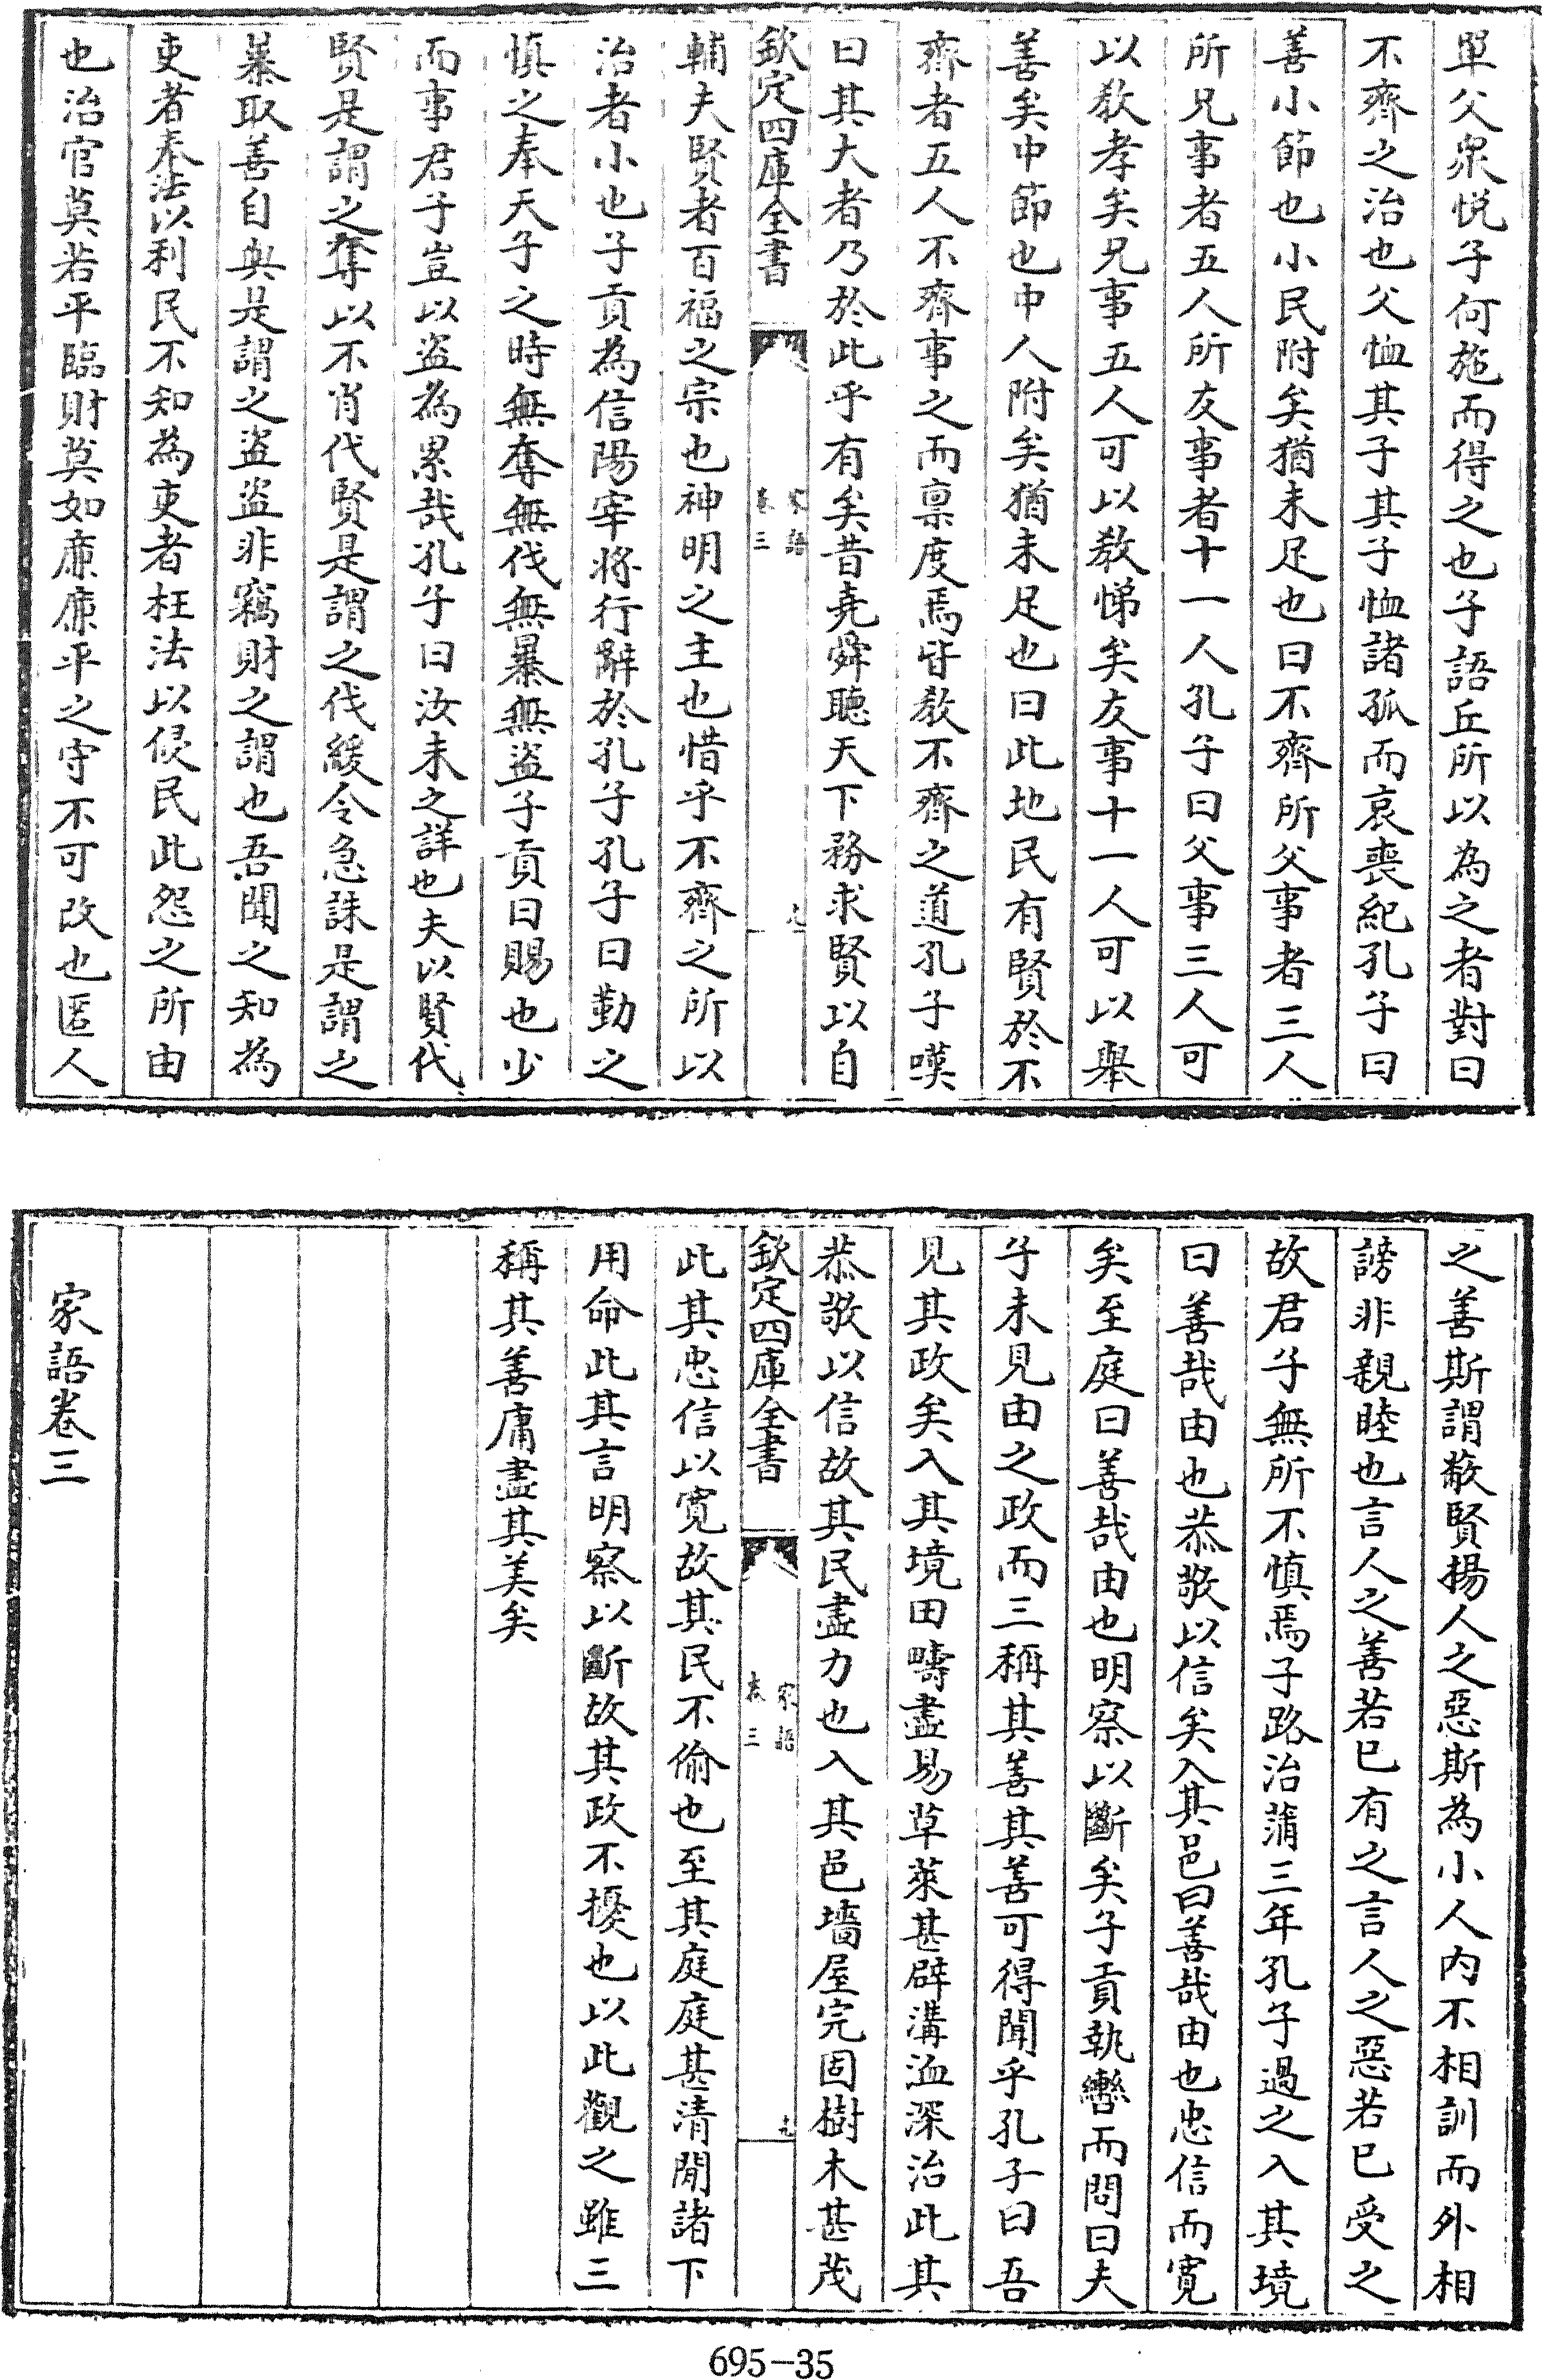 單父衆悅子何施而得之也子語丘所以為之者對曰
不齊之治也父恤其子其子恤諸孤而哀喪紀孔子曰
善小節也小民附矣猶未足也曰不齊所父事者三人
所兄事者五人所友事者十一人孔子曰父事三人可
以敎孝矣兄事五人可以敎悌矣友事十一人可以舉
善矣中節也中人附矣猶未足也曰此地民有賢於不
齊者五人不齊事之而稟度焉皆敎不齊之道孔子嘆
曰其大者乃於此乎有矣昔堯舜聽天下務求賢以自
欽定四庫全書
家語
卷三
輔夫賢者百福之宗也神明之主也惜乎不齊之所以
治者小也子貢為信陽宰將行辭於孔子孔子曰勤之
慎之奉天子之時無奪無伐無暴無盜子貢曰賜也少
而事君子豈以盜為累哉孔子曰汝未之詳也夫以賢代
賢是謂之奪以不肖代賢是謂之伐緩令急誅是謂之
暴取善自與是謂之盜盜非竊財之謂也吾聞之知為
吏者奉法以利民不知為吏者枉法以侵民此怨之所由
也治官莫若平臨財莫如廉廉平之守不可改也匿人
之善斯謂蔽賢揚人之惡斯為小人內不相訓而外相
謗非親睦也言人之善若已有之言人之惡若已受之
故君子無所不慎焉子路治蒲三年孔子過之入其境
曰善哉由也恭敬以信矣入其邑曰善哉由也忠信而寬
矣至庭曰善哉由也明察以斷矣子貢執轡而問曰夫
子未見由之政而三稱其善其善可得聞乎孔子曰吾
見其政矣入其境田疇盡易草萊甚辟溝洫深治此其
恭敬以信故其民盡力也入其邑墻屋完固樹木甚茂
欽定四庫全書
家語
卷三
此其忠信以寬故其民不偷也至其庭庭甚清閒諸下
用命此其言明察以斷故其政不擾也以此觀之雖三
稱其善庸盡其美矣
家語卷三
695-35